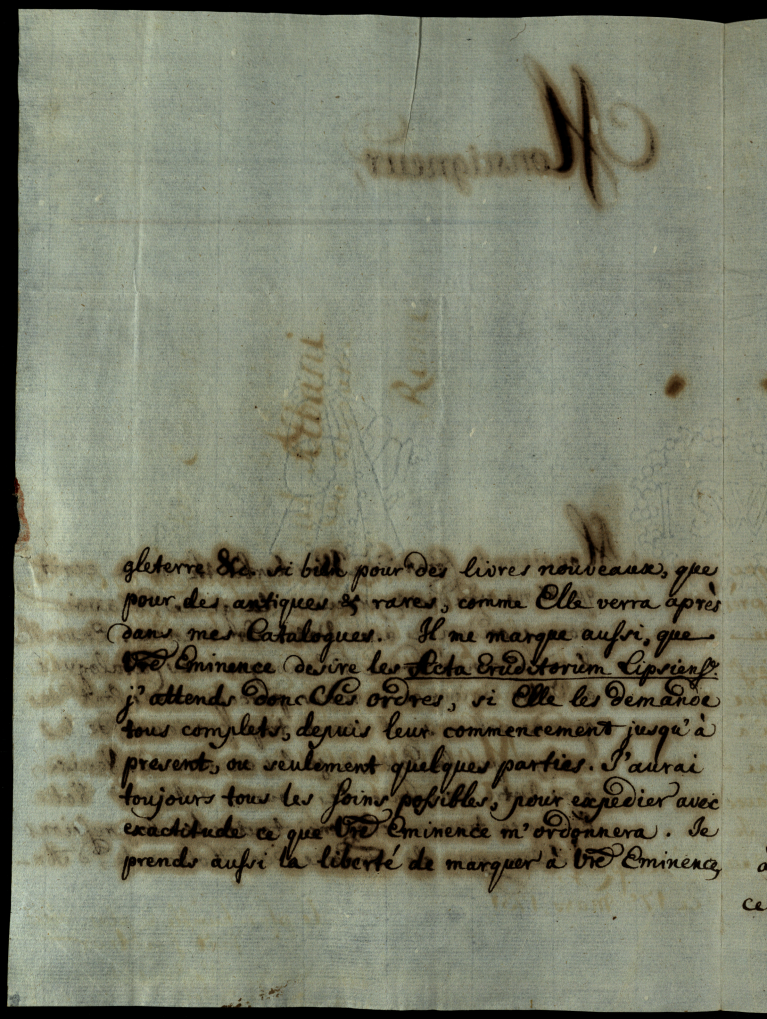 Monsigneur,
Albani
Rome
gleterre &c. si bien pour des livres nouveaux, que
pour des antiques & rares, comme Elle verra après
dans mes Catalogues. Il me marque aussi, que
Vre Eminence desire les Acta Eruditorum Lipsiens.
j'attends donc Ses ordres, si Elle les demande
tous complets, depuis leur commencement jusqu'à
present, ou seulement quelques parties. J'aurai
toujours tous les soins possibles, pour expedier avec
exactitude ce que Vre Eminence m'ordonnera. Je
prends aussi la liberté de marquer à Vre Eminence,
ce